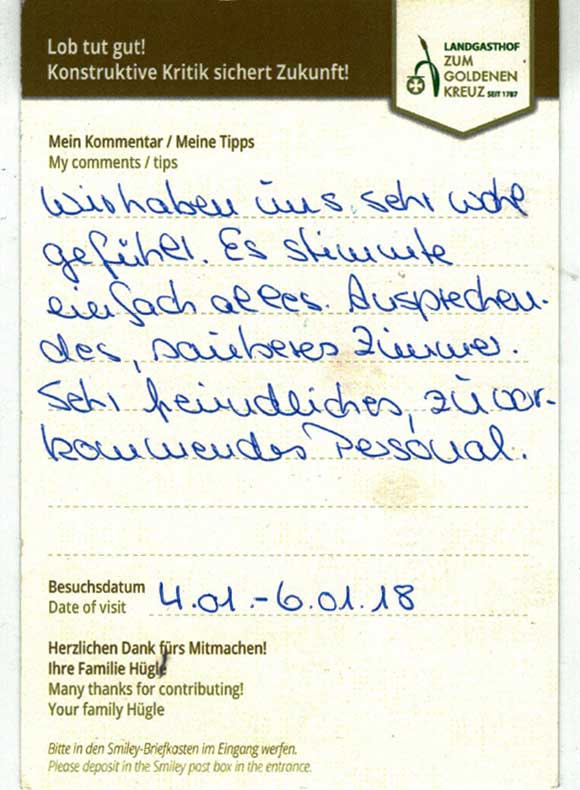 Lob tut gut!
Konstruktive Kritik sichert Zukunft!
LANDGASTHOF
ZUM
GOLDENEN
KREUZ SEIT 1787
Mein Kommentar / Meine Tipps
My comments / tips
Wir haben uns sehr wohl
gefühlt. Es stimmte
einfach alles. Ansprechen-
des, sauberes Zimmer.
Sehr freundliches, zuvor-
kommendes Personal.
Besuchsdatum
Date of visit 4.01.-6.01.18
Herzlichen Dank fürs Mitmachen!
Ihre Familie Hügle
Many thanks for contributing!
Your family Hügle
Bitte in den Smiley-Briefkasten im Eingang werfen.
Please deposit in the Smiley post box in the entrance.